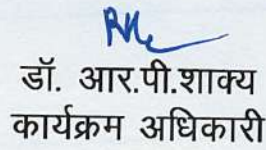 डॉ. आर.पी.शाक्य
कार्यक्रम अधिकारी